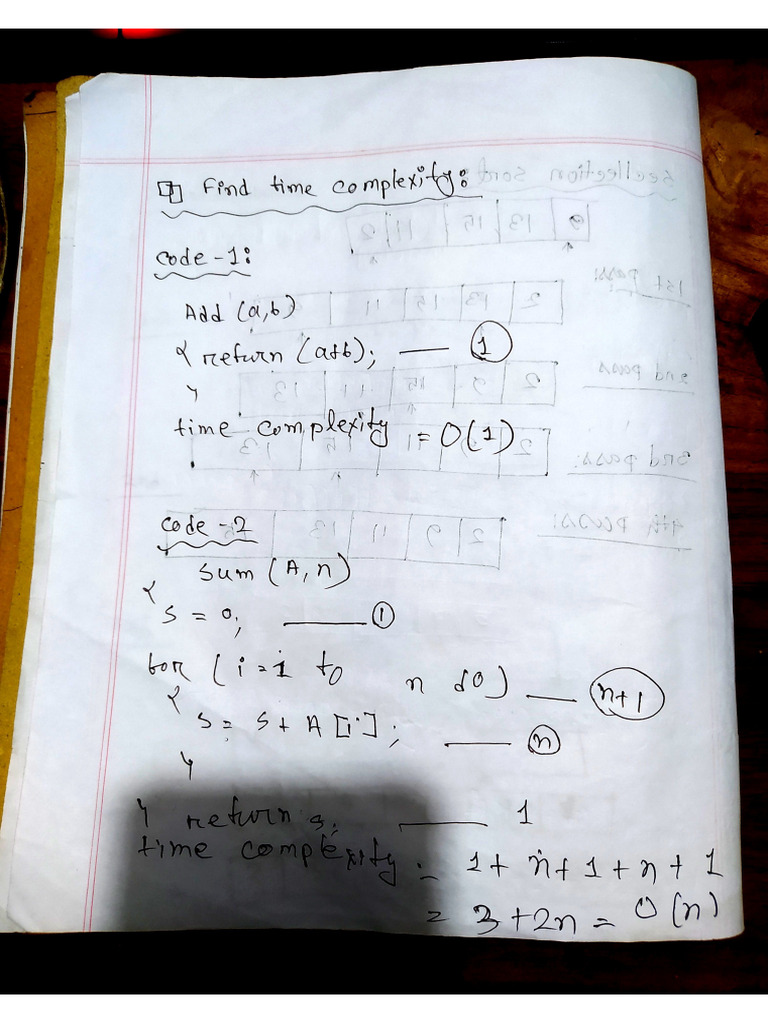 Find time complexity:
code-1:
Add (a,b)
{ return (a+b); — 1
}
time complexity = O(1)
code-2
sum (A, n)
{
s = 0; — 1
for (i=1 to n do) — n+1
{
s = s + A[i]; — n
}
} return s; — 1
time complexity = 1 + n + 1 + n + 1
= 3 + 2n = O(n)